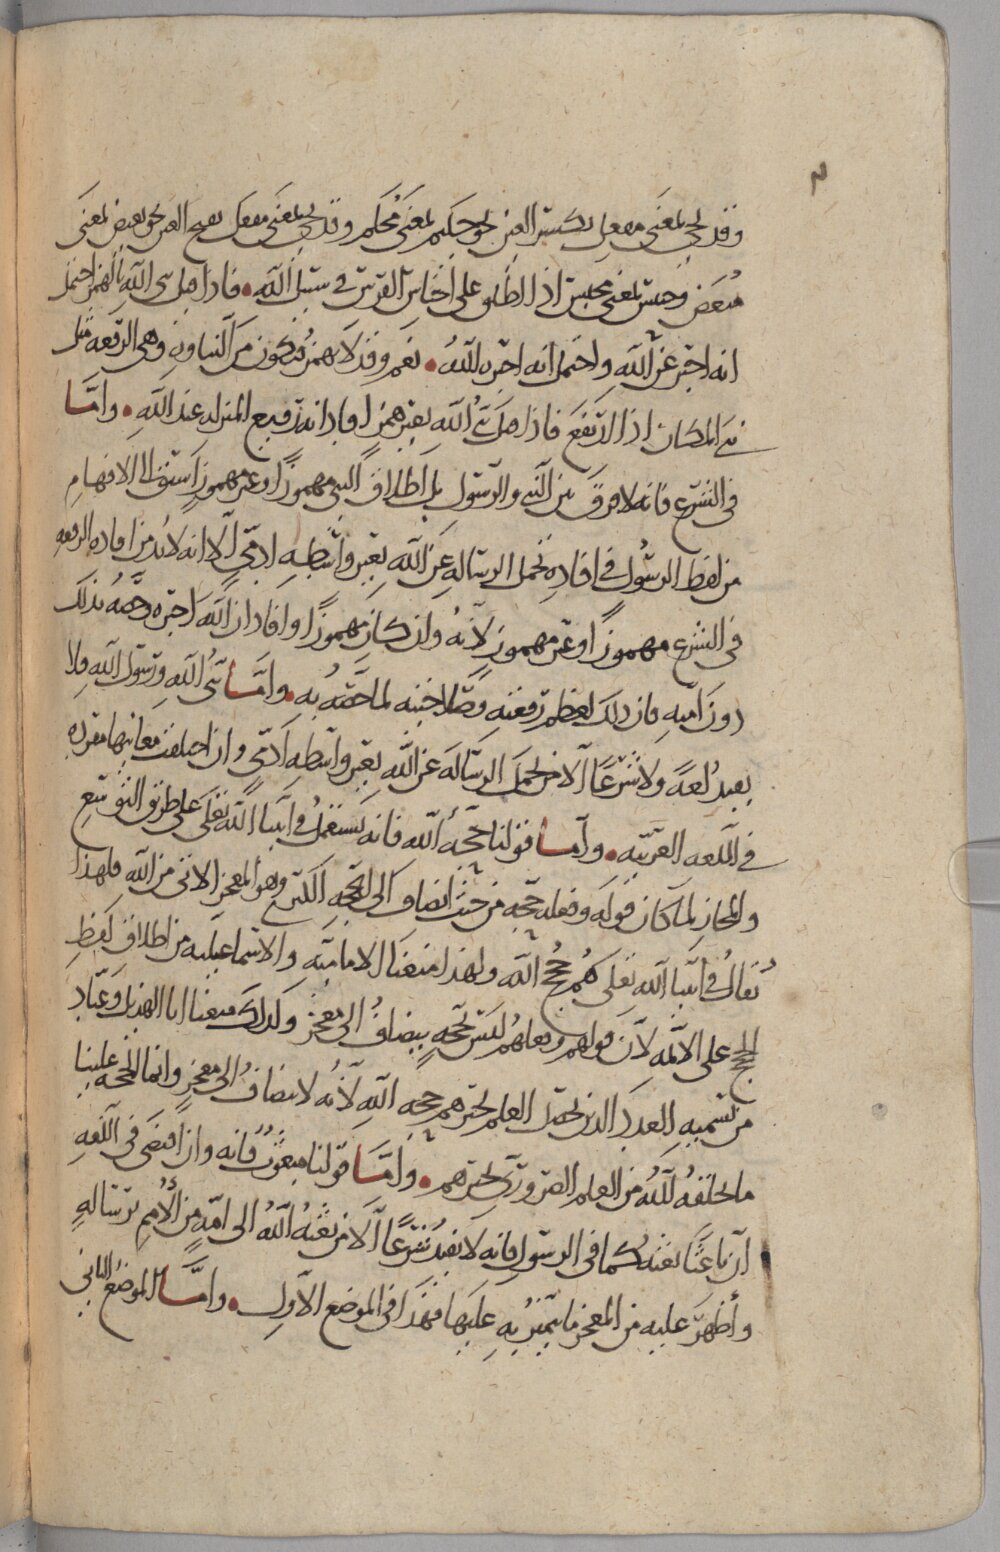 ٣
وقد يجي بمعنى مفعِل بكسر العين نحو حكيم بمعنى مُحكم وقد يجي بمعنى مفعَل بفتح العين نحو بعيض بمعنى
مبعَض وحبيس بمعنى محبس اذا اطلق على احباس الفرس في سبيل الله • فاذا قيل نبي الله بالهمز احتمل
انه اخبر عن الله واحتمل انه اخبره الله • نعم وقد لا يهمز فيكون من النباوة وهي الرفعة مثل
نبى المكان اذا ارتفع فاذا قيل نبيُّ الله بغير همز افاد انه رفيع المنزلة عند الله • وامَّا
في الشرع فانه لا فرق بين النبي والرسول بل اطلاق النبي مهموزًا وغير مهموز اسبق الى الافهام
من لفظ الرسول في افادة تحمل الرسالة عن الله بغير واسطة ادمي الا انه لا بد من افادة الرفعة
في الشرع مهموزًا وغير مهموز لانه وان كان مهموزًا وافاد ان الله اخبره وخصه بذلك
دون امته فان ذلك لعظم رفعته وصلاحيته لما خصه به • وامَّا نبيُّ الله ورسول الله فلا
يفيد لغة ولا شرعًا الا من تحمل الرسالة عن الله بغير واسطة ادمي وان اختلفت معانيها مفردة
في اللغه العربيه • وامَّا قولنا حجة الله فانه يستعمل في انبياء الله تعلى على طريق التوسع
والمجاز لما كان قوله وفعله حجة من حيث انضاف الى الحجة الكبرى وهو المعجز الاتي من الله فلهذا
يُقال في انبيا الله تعلى هُم حجج الله ولهذا منعنا الامامية والاسماعيلية من اطلاق لفظ
الحجج على الائمه لان قولهم وفعلهم ليس بحجة ينضاف الى معجز وكذلك منعنا ابا الهذيل وعباد
من تسمية العدد الذين يحصل العلم بخبرهم حجة الله لانه لا ينضاف الى معجز وانما الحجة علينا
ما يخلقه الله من العلم الضروري بخبرهم • وامَّا قولنا مبعوث فانه وان اقتضى في اللغه
ان باعثًا بعثه كما في الرسول فانه لا يفيد شرعًا الا من بعثه الله الى امة من الامم برسالة
وأظهر عليه من المعجز ما يتميز به عليها فهذا في الموضع الاول • وامَّا الموضع الثاني